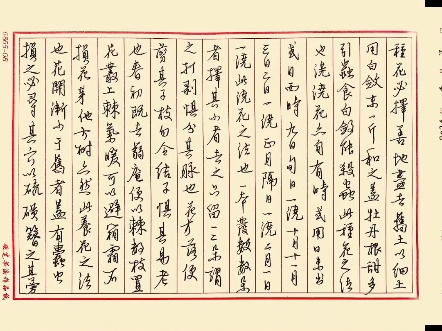 種花必擇善地盡去舊土以細土
用白斂末一斤和之蓋牡丹根甜多
引蟲食白斂能殺蟲此種花之法
也澆花亦自有時或用日未出
或日西時九月旬日一澆十月十一月
三日二日一澆正月隔日一澆二月一日
一澆此澆花之法也一本發數朵
者擇其小者去之只留一二朵謂
之打剝懼分其脈也花才落便
剪其子枝勿令結子懼其易老
也春初既去蒻庵便以棘數枝置
花叢上棘氣暖可以避霜不
損花芽他大樹亦然此養花之法
也花開漸小于舊者蓋有蠹蟲
損之必尋其穴以硫磺簪之其旁